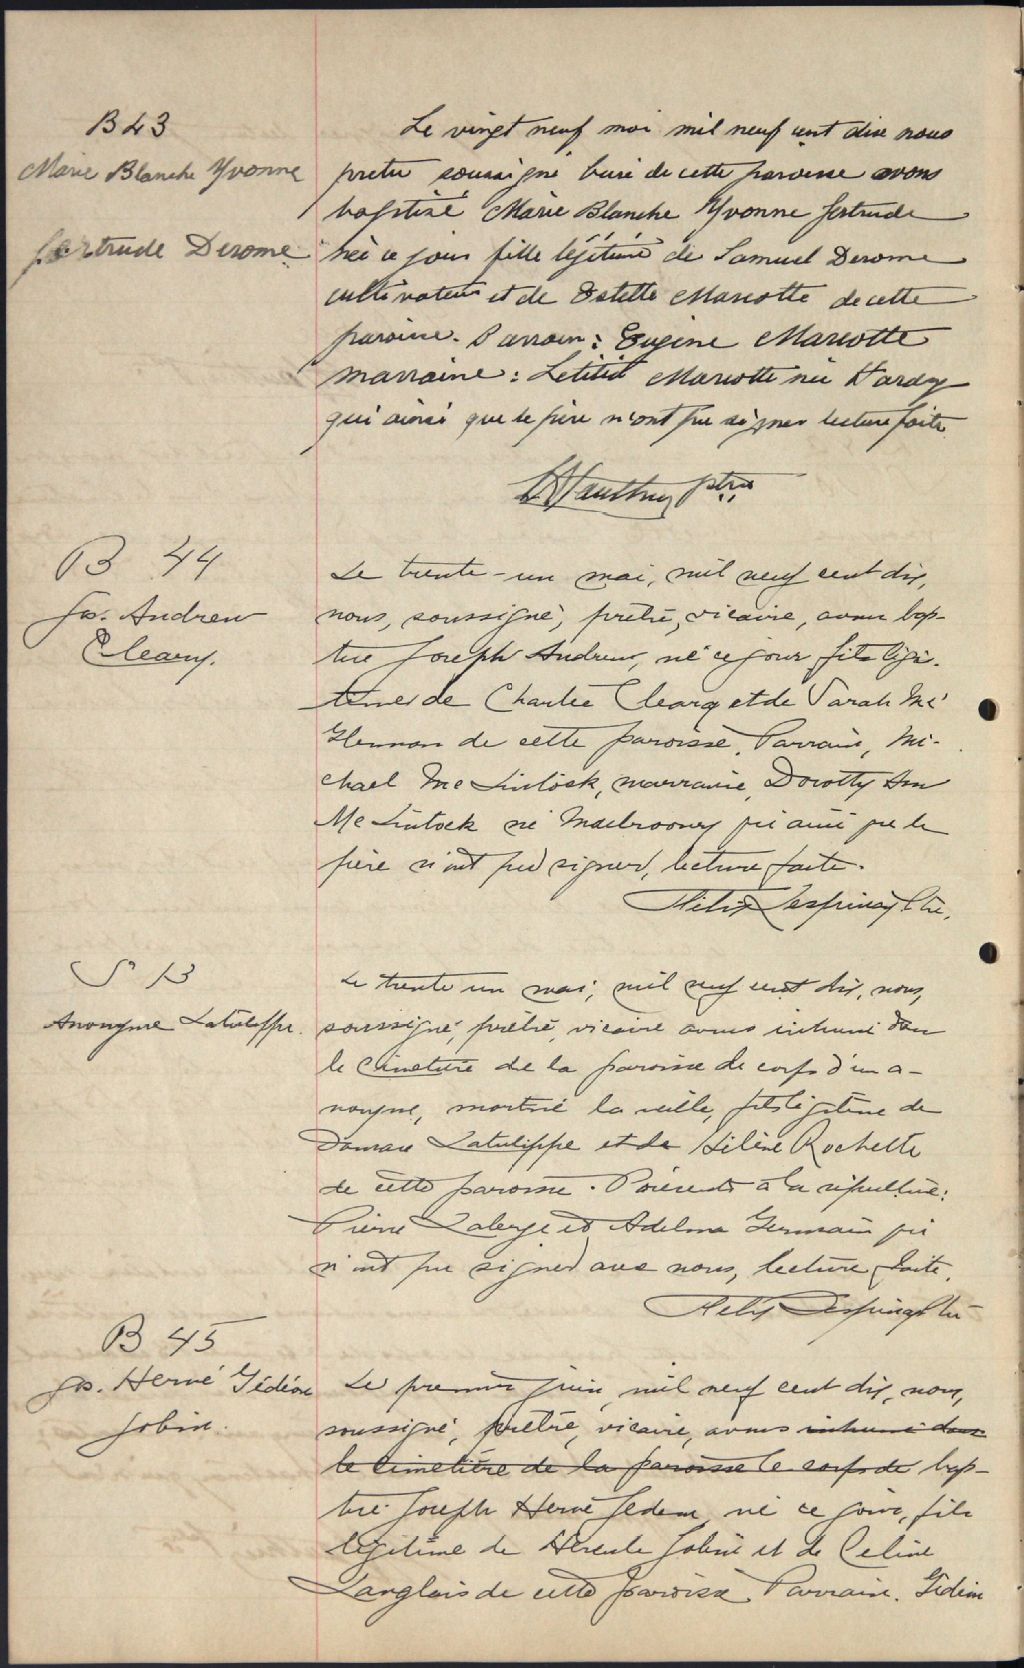 B 43
Marie Blanche Yvonne
Gertrude Derome
Le vingt neuf mai mil neuf cent dix nous
pretre soussigné curé de cette paroisse avons
baptisé Marie Blanche Yvonne Gertrude
née ce jour fille légitime de Samuel Derome
cultivateur et de Estelle Marcotte de cette
paroisse. Parrain : Eugène Marcotte
marraine : Letitia Marcotte née Hardy
qui ainsi que le père n'ont pu signer lecture faite
ptre
B 44
Jos. Andrew
Cleary.
Le trente-un mai, mil neuf cent dix,
nous, soussigné, prêtre, vicaire, avons bap-
tisé Joseph Andrew, né ce jour fils légi-
time de Charles Cleary et de Sarah Mc
de cette paroisse. Parrain, Mi-
chael Mc Lintock, marraine, Dorotty Ann
Mc Lintock né qui ainsi que le
père n'ont pu signer, lecture faite.
Ptre.
S 13
Anonyme Latulippe.
Le trente un mai, mil neuf cent dix, nous,
soussigné, prêtre, vicaire avons inhumé dans
le cimetière de la paroisse le corps d'un a-
nonyme, mort né la veille, fils légitime de
Latulippe et de Hélène Rochette
de cette paroisse. Présents à la sépulture:
Pierre Laberge et Adelma Germain qui
n'ont pu signer avec nous, lecture faite.
Ptre
B 45
Jos. Hervé Gédéon
Jobin.
Le premier juin, mil neuf cent dix, nous,
soussigné, prêtre, vicaire, avons inhumé dans
le cimetière de la paroisse le corps de bap-
tisé Joseph Hervé Gedeon né ce jour, fils
légitime de Hercule Jobin et de Celine
Langlois de cette paroisse. Parrain. Gédéon